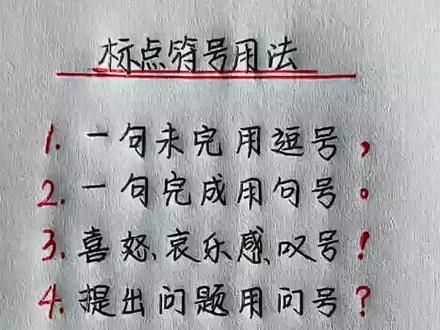 标点符号用法
1. 一句未完用逗号，
2. 一句完成用句号。
3. 喜怒、哀乐感叹号！
4. 提出问题用问号？